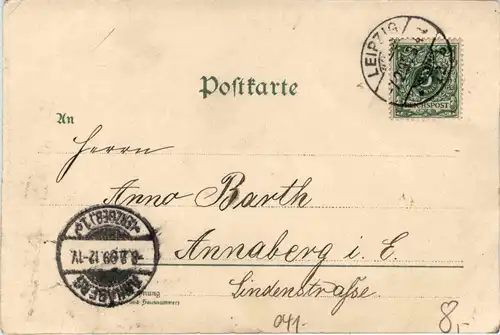 LEIPZIG
REICHSPOST
Postkarte
An
Herrn
Anno Barth
Annaberg i. E.
Lindenstraße.
ANNABERG
(ERZGEB.)
8.2.99.12-1V.
nung
und Hausnummer)
8,-